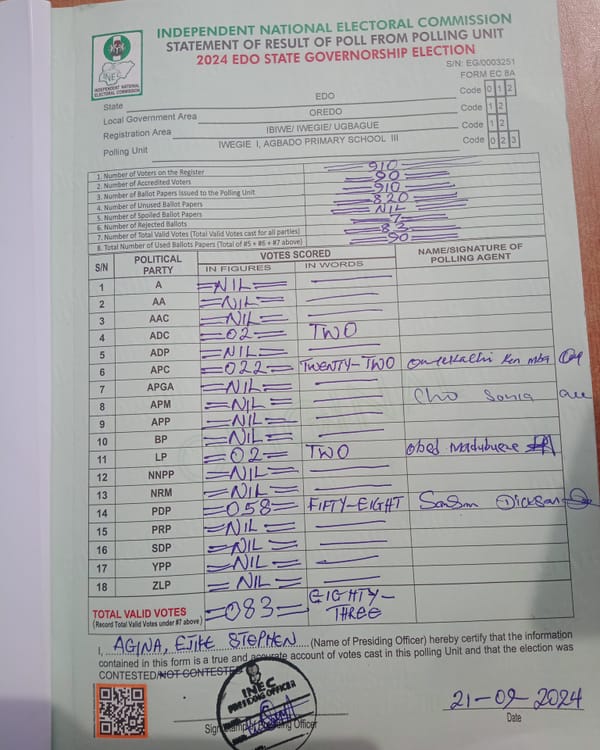 INDEPENDENT NATIONAL ELECTORAL COMMISSION
STATEMENT OF RESULT OF POLL FROM POLLING UNIT
2024 EDO STATE GOVERNORSHIP ELECTION
INEC
INDEPENDENT NATIONAL
ELECTORAL COMMISSION
S/N: EG/0003251
FORM EC 8A
State EDO Code 0 1 2
Local Government Area OREDO Code 1 2
Registration Area IBIWE/ IWEGIE/ UGBAGUE Code 1 2
Polling Unit IWEGIE I, AGBADO PRIMARY SCHOOL III Code 0 2 3
1. Number of Voters on the Register 910
2. Number of Accredited Voters 90
3. Number of Ballot Papers Issued to the Polling Unit 910
4. Number of Unused Ballot Papers 820
5. Number of Spoiled Ballot Papers NIL
6. Number of Rejected Ballots 7
7. Number of Total Valid Votes (Total Valid Votes cast for all parties) 83
8. Total Number of Used Ballots Papers (Total of #5 + #6 + #7 above) 90
S/N POLITICAL PARTY VOTES SCORED NAME/SIGNATURE OF POLLING AGENT
IN FIGURES IN WORDS
1 A =NIL=
2 AA =NIL=
3 AAC =NIL=
4 ADC =02= TWO
5 ADP =NIL=
6 APC =022= TWENTY-TWO
7 APGA =NIL=
8 APM =NIL= Cho Sonia
9 APP =NIL=
10 BP =NIL=
11 LP =02= TWO Obed Madubueze
12 NNPP =NIL=
13 NRM =NIL=
14 PDP =058= FIFTY-EIGHT Dickson
15 PRP =NIL=
16 SDP =NIL=
17 YPP =NIL=
18 ZLP =NIL=
TOTAL VALID VOTES =083= EIGHTY-THREE
(Record Total Valid Votes under #7 above)
I, AGINA, EJIKE STEPHEN (Name of Presiding Officer) hereby certify that the information
contained in this form is a true and accurate account of votes cast in this polling Unit and that the election was
CONTESTED/NOT CONTESTED
INEC
PRESIDING OFFICER
21-09-2024
Date